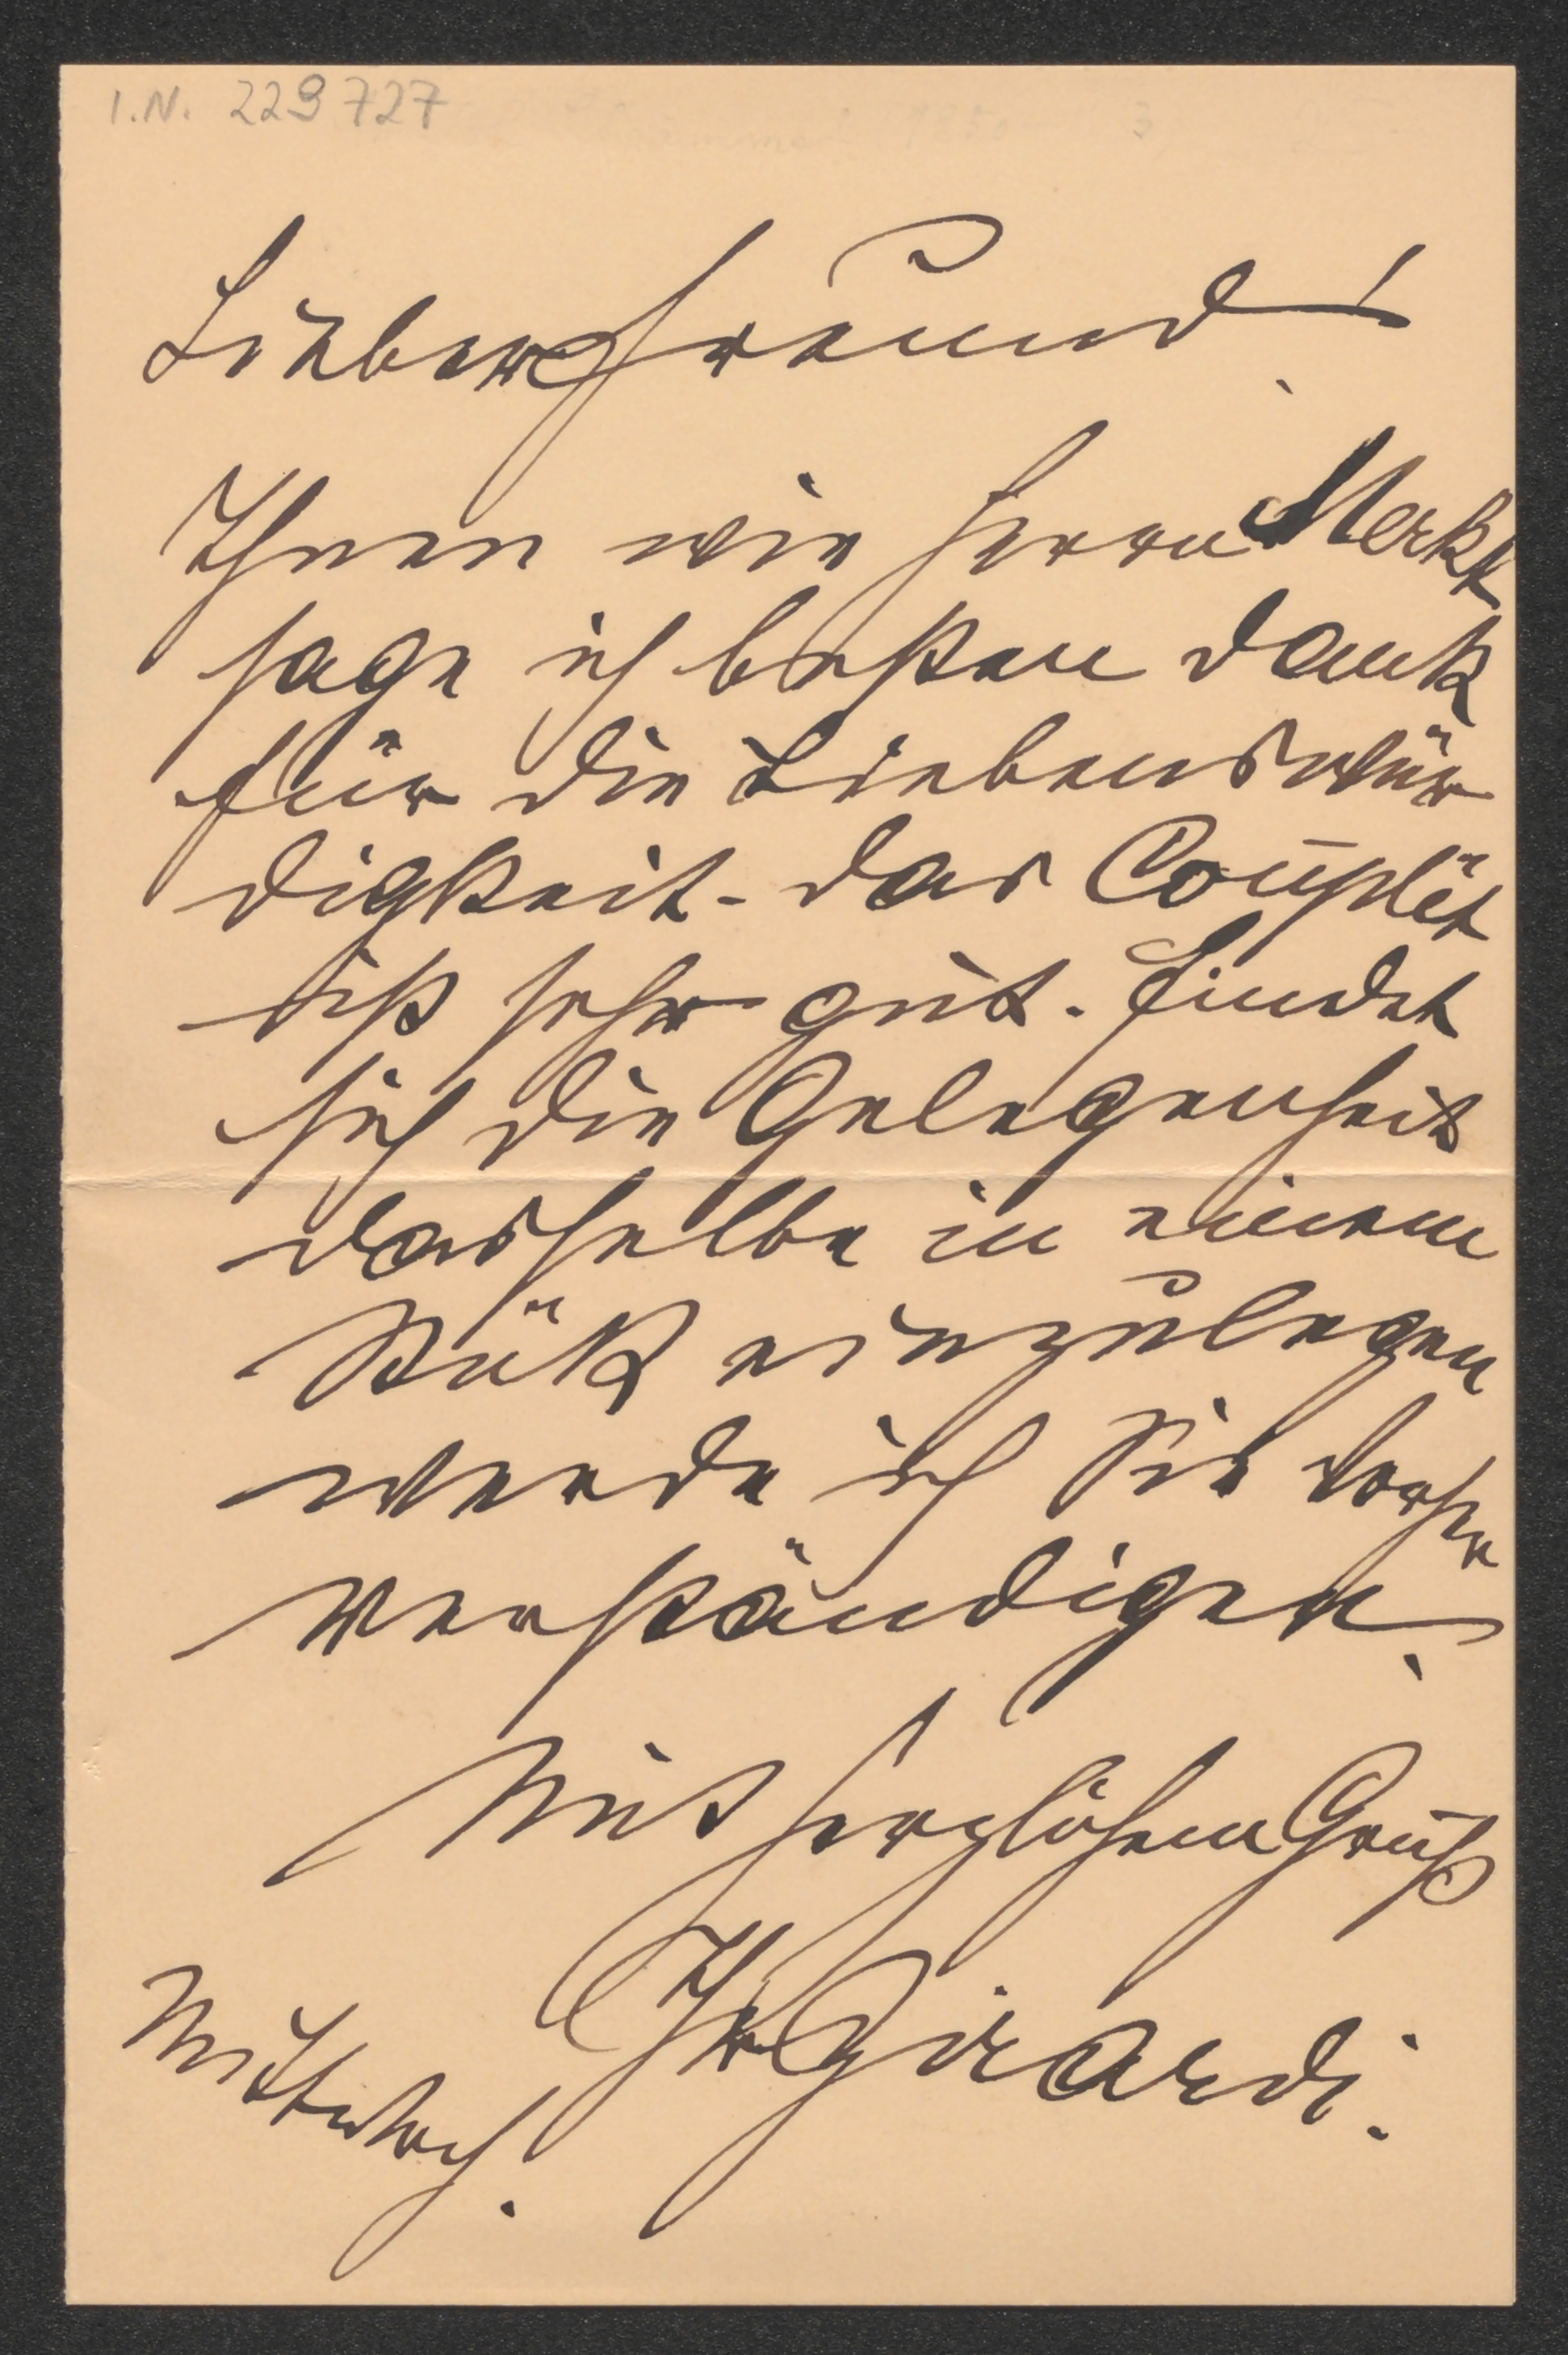 I.N. 229727
Lieber Freund!
Ihnen wie Herrn Merkt
sage ich besten Dank
für die Liebenswür
digkeit - das Couplet
ist sehr gut. Findet
sich die Gelegenheit
dasselbe in einem
Stück einzulegen
werde ich Sie davon
verständigen.
Mit herzlichem Gruß
Ihr Girardi.
Mittwoch.